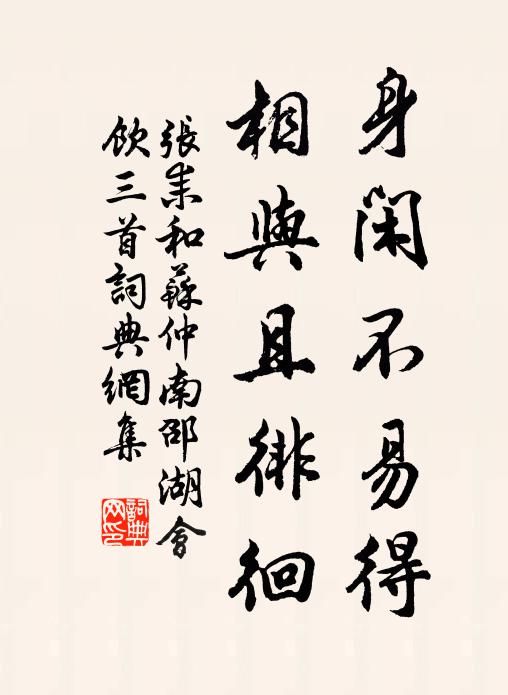 身閑不易得
相與且徘徊
張耒和蘇仲南邵湖會
飲三首詞典網集
詞典网印